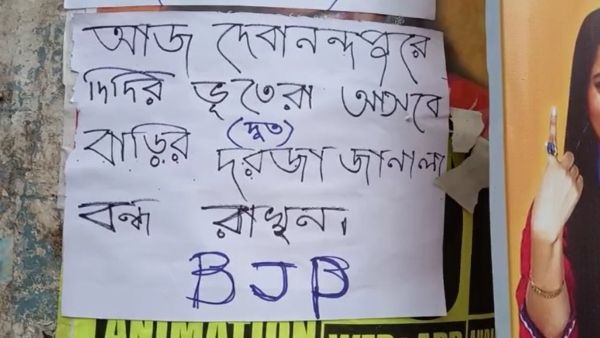 আজ দেবানন্দপুরে
দিদির ভূতেরা আসবে
(দুত)
বাড়ির দরজা জানালা
বন্ধ রাখুন।
BJP
ANIMATION